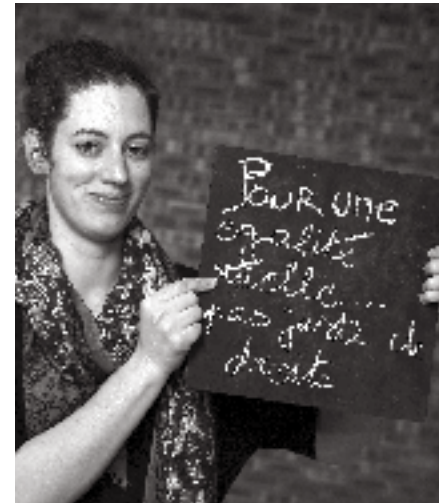 Pour une
égalité
réelle...
pas juste de
droite